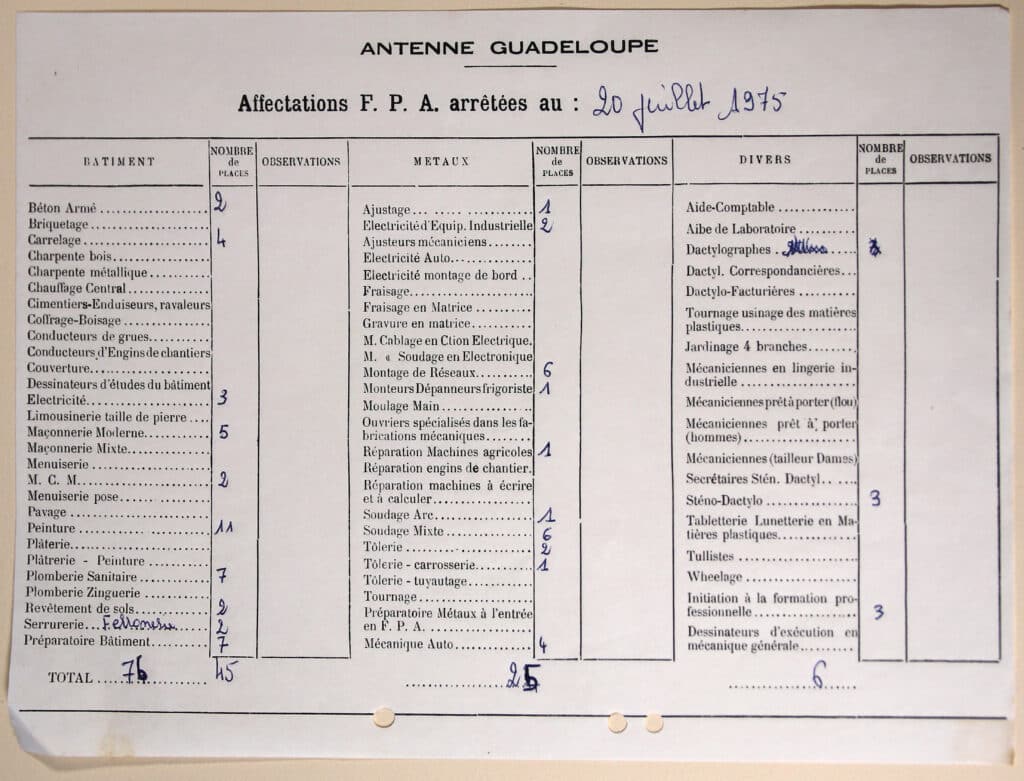 ANTENNE GUADELOUPE
Affectations F. P. A. arrêtées au : 20 juillet 1975
BATIMENT
NOMBRE de PLACES
OBSERVATIONS
Béton Armé 2
Briquetage
Carrelage 4
Charpente bois
Charpente métallique
Chauffage Central
Cimentiers-Enduiseurs, ravaleurs
Coffrage-Boisage
Conducteurs de grues
Conducteurs d'Engins de chantiers
Couverture
Dessinateurs d'études du bâtiment
Electricité 3
Limousinerie taille de pierre
Maçonnerie Moderne 5
Maçonnerie Mixte
Menuiserie
M. C. M. 2
Menuiserie pose
Pavage
Peinture 11
Plâterie
Plâtrerie - Peinture
Plomberie Sanitaire 7
Plomberie Zinguerie
Revêtement de sols 2
Serrurerie 2
Préparatoire Bâtiment 7
TOTAL 76 45
METAUX
NOMBRE de PLACES
OBSERVATIONS
Ajustage 1
Electricité d'Equip. Industrielle 2
Ajusteurs mécaniciens
Electricité Auto
Electricité montage de bord
Fraisage
Fraisage en Matrice
Gravure en matrice
M. Cablage en Ction Electrique.
M. « Soudage en Electronique
Montage de Réseaux 6
Monteurs Dépanneurs frigoriste 1
Moulage Main
Ouvriers spécialisés dans les fa-
brications mécaniques
Réparation Machines agricoles 1
Réparation engins de chantier.
Réparation machines à écrire
et à calculer
Soudage Arc 1
Soudage Mixte 6
Tôlerie 2
Tôlerie - carrosserie 1
Tôlerie - tuyautage
Tournage
Préparatoire Métaux à l'entrée
en F. P. A.
Mécanique Auto 4
25
DIVERS
NOMBRE de PLACES
OBSERVATIONS
Aide-Comptable
Aibe de Laboratoire
Dactylographes
Dactyl. Correspondancières
Dactylo-Facturières
Tournage usinage des matières
plastiques
Jardinage 4 branches
Mécaniciennes en lingerie in-
dustrielle
Mécaniciennes prêt à porter (flou)
Mécaniciennes prêt à porter
(hommes)
Mécaniciennes (tailleur Dames)
Secrétaires Stén. Dactyl.
Sténo-Dactylo 3
Tabletterie Lunetterie en Ma-
tières plastiques
Tullistes
Wheelage
Initiation à la formation pro-
fessionnelle 3
Dessinateurs d'exécution en
mécanique générale
6